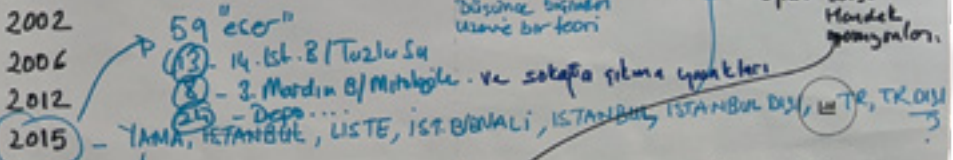 2002
2006
2012
2015
59 "eser"
düşünce biçimleri
üzerine bir teori
13 - 14. İst. B / Tuzlu Su
8 - 3. Mardin B / Mitolojiler ve sokağa çıkma yasakları
25 - Depo .....
- YAMA, İSTANBUL, LISTE, İST. BİENALİ, İSTANBUL, İSTANBUL DIŞI, TR, TR DIŞI
Hendek